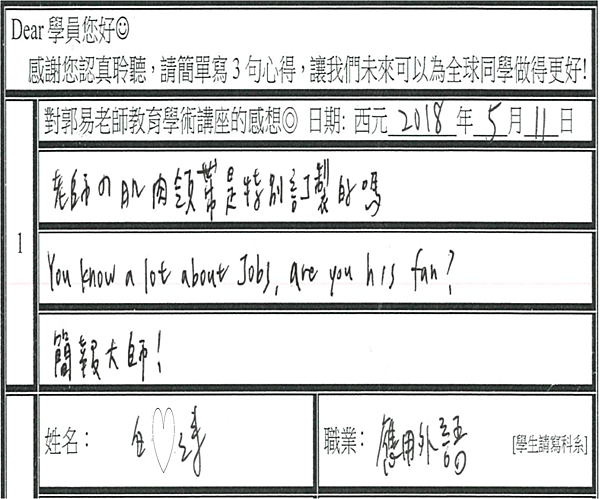 Dear 學員您好☺
感謝您認真聆聽，請簡單寫 3 句心得，讓我們未來可以為全球同學做得更好!
1
對郭易老師教育學術講座的感想◎ 日期: 西元 2018 年 5 月 11 日
老師の肌肉領帶是特別訂製的嗎
You know a lot about Jobs, are you his fan?
簡報大師!
姓名：
職業： 應用外語 [學生請寫科系]